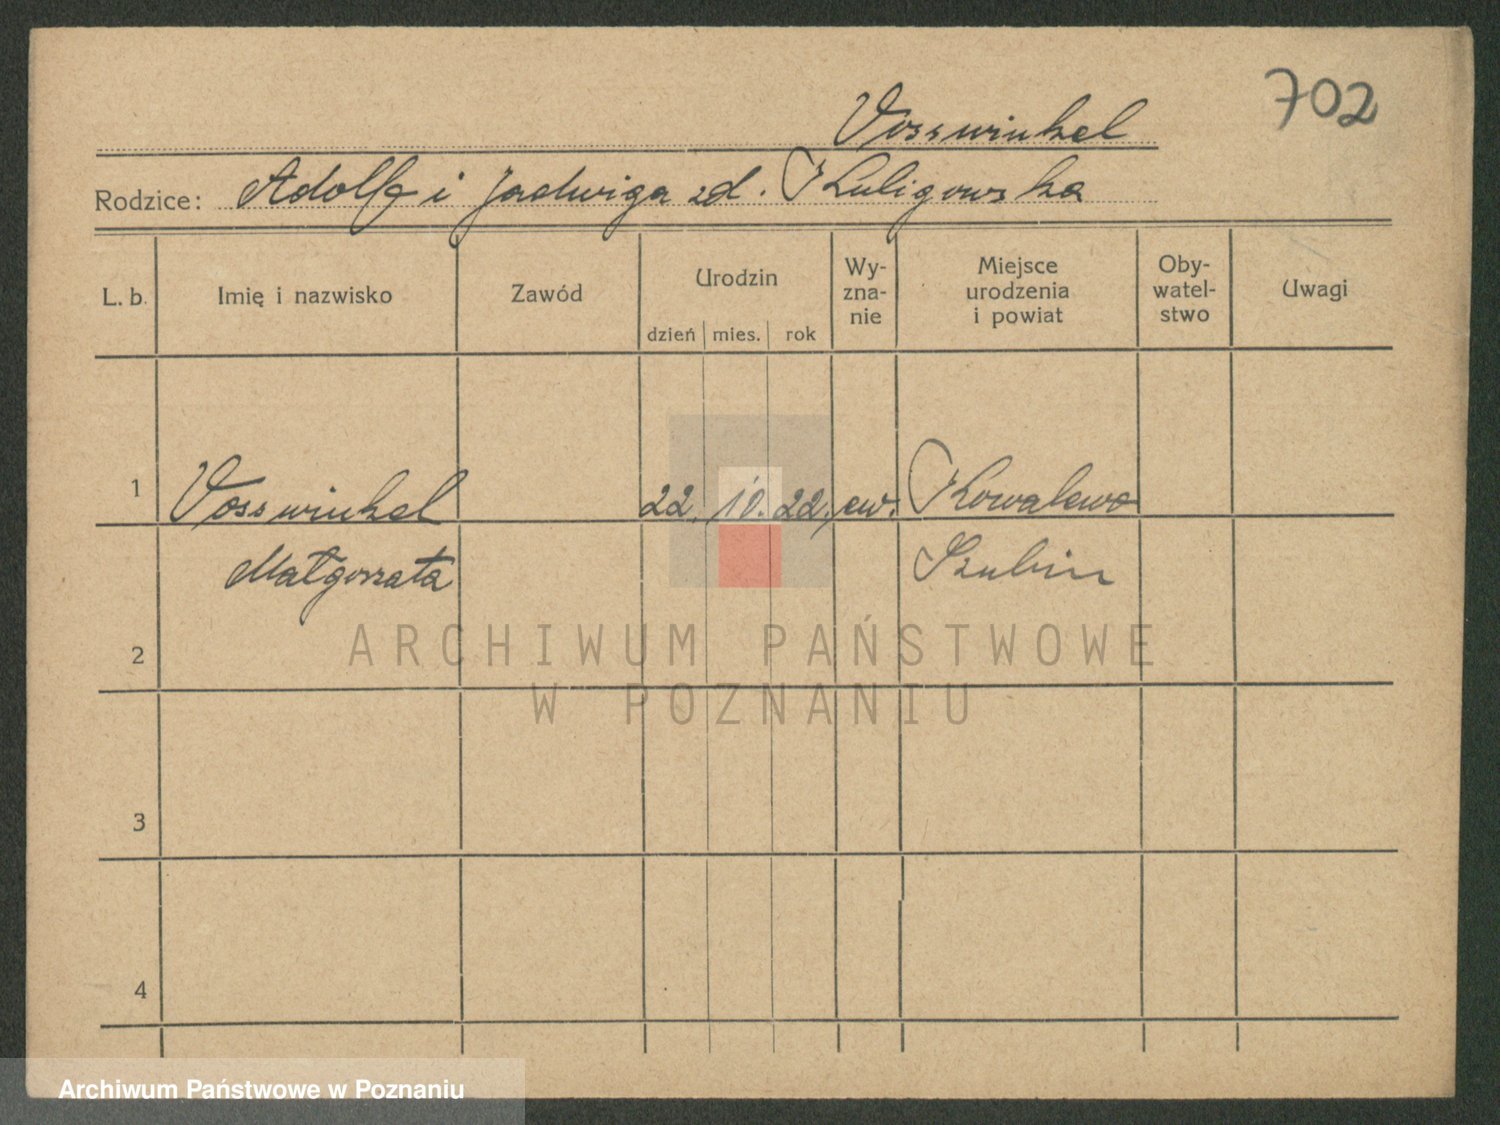 702
Vosswinkel
Rodzice: Adolf i Jadwiga zd. Kuligowska
L. b. Imię i nazwisko Zawód Urodzin Wy- zna- nie Miejsce urodzenia i powiat Oby- watel- stwo Uwagi
dzień mies. rok
1 Vosswinkel 22. 10. 22. ew. Kowalewo
Małgorzata Szubin
2
3
4
ARCHIWUM PAŃSTWOWE
W POZNANIU
Archiwum Państwowe w Poznaniu